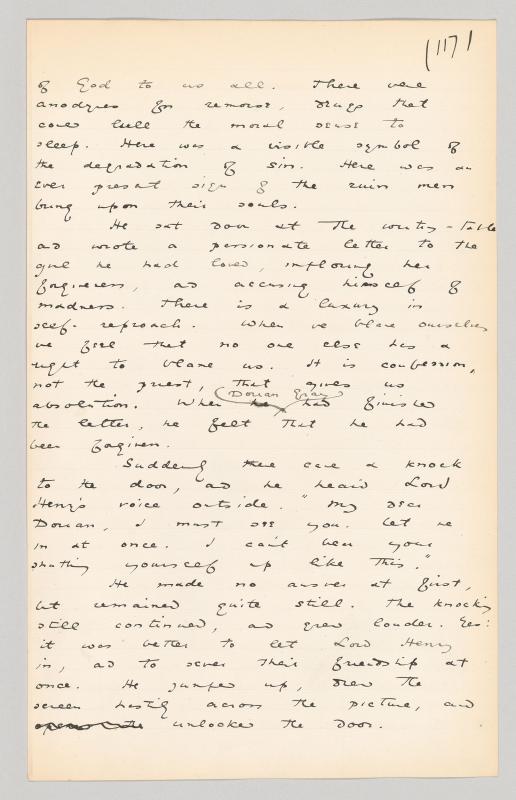 (117)
of God to us all. There were
anodynes for remorse, drugs that
could lull the moral sense to
sleep. Here was a visible symbol of
the degradation of sin. Here was an
ever present sign of the ruin men
bring upon their souls.
He sat down at the writing-table
and wrote a passionate letter to the
girl he had loved, imploring her
forgiveness, and accusing himself of
madness. There is a luxury in
self-reproach. When we blame ourselves
we feel that no one else has a
right to blame us. It is confession,
not the priest, that gives us
Dorian Gray
absolution. When he had finished
the letter, he felt that he had
been forgiven.
Suddenly there came a knock
to the door, and he heard Lord
Henry's voice outside. "My dear
Dorian, I must see you. Let me
in at once. I can't bear your
shutting yourself up like this."
He made no answer at first,
but remained quite still. The knocking
still continued, and grew louder. Yes:
it was better to let Lord Henry
in, and to sever their friendship at
once. He jumped up, drew the
screen hastily across the picture, and
unlocked the door.